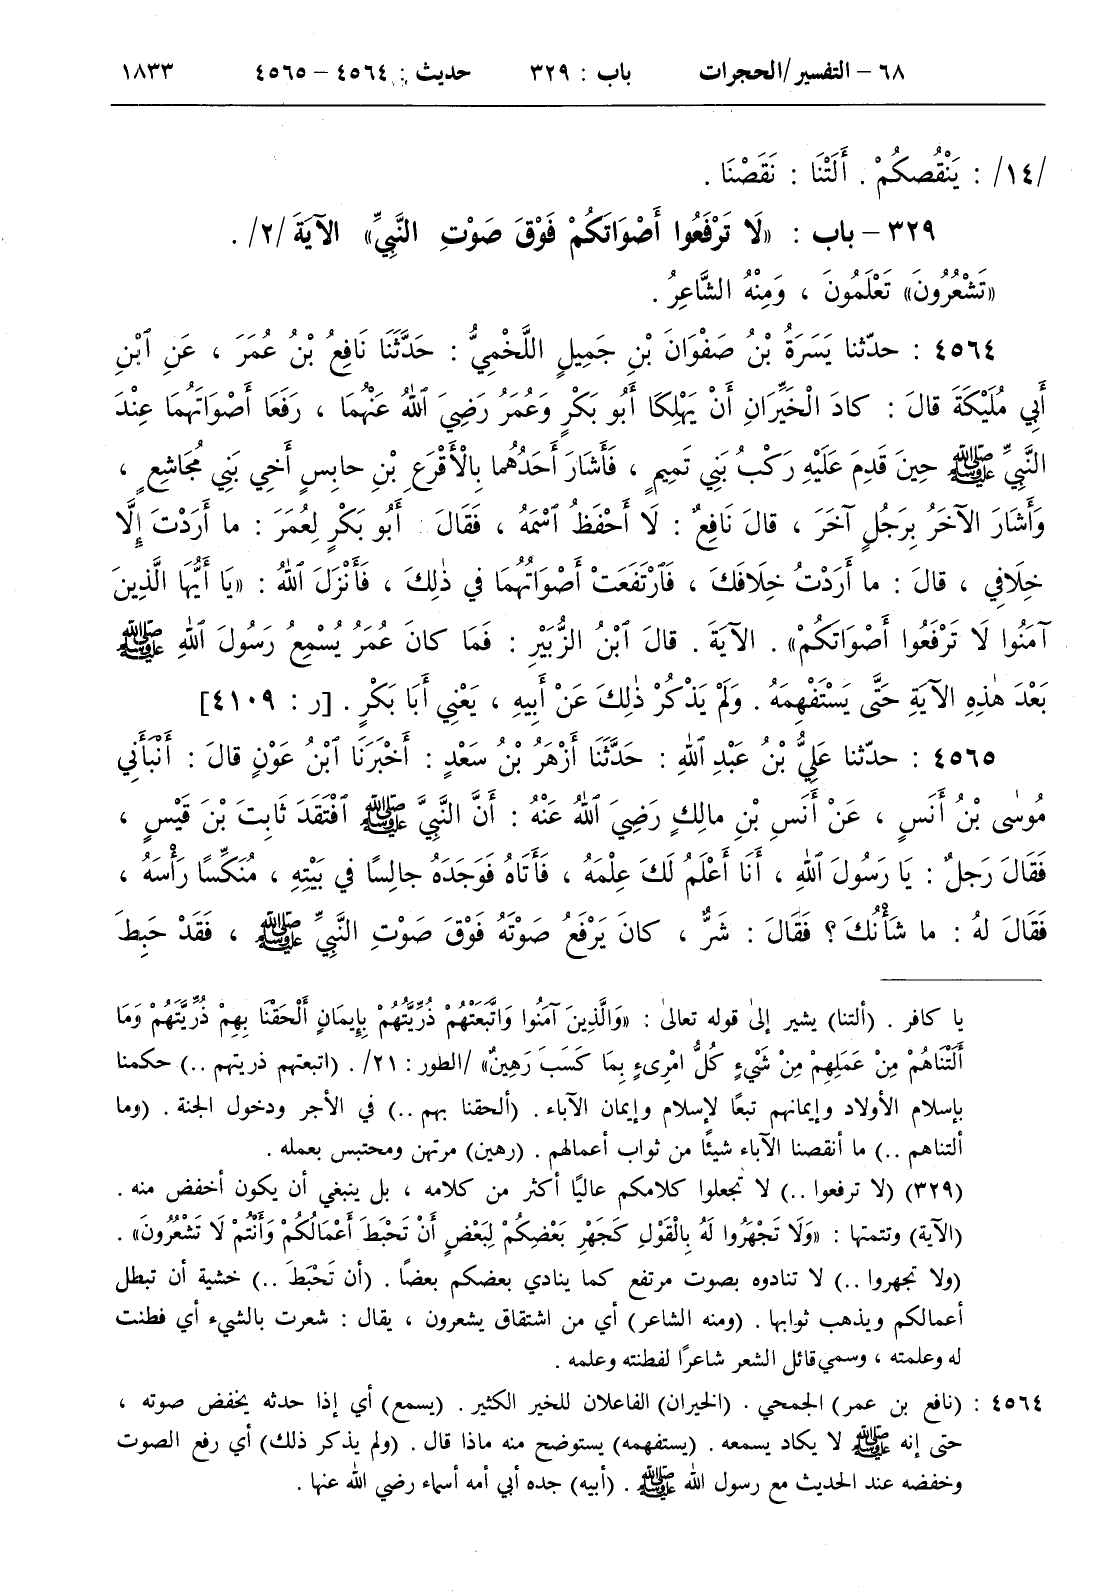 ٦٨ – التفسير/الحجرات باب : ٣٢٩ حديث : ٤٥٦٤ – ٤٥٦٥ ١٨٣٣
/١٤/ : يَنْقُصكُمْ . أَلَتْنَا : نَقَصْنَا .
٣٢٩ – باب : «لَا تَرْفَعُوا أَصْوَاتَكُمْ فَوْقَ صَوْتِ النَّبِيِّ» الآيَةَ /٢/ .
«تَشْعُرُونَ» تَعْلَمُونَ ، وَمِنْهُ الشَّاعِرُ .
٤٥٦٤ : حدّثنا يَسَرَةُ بْنُ صَفْوَانَ بْنِ جَمِيلٍ اللَّخْمِيُّ : حَدَّثَنَا نَافِعُ بْنُ عُمَرَ ، عَنِ ٱبْنِ
أَبِي مُلَيْكَةَ قالَ : كادَ الْخَيِّرَانِ أَنْ يَهْلِكَا أَبُو بَكْرٍ وَعُمَرُ رَضِيَ ٱللهُ عَنْهُمَا ، رَفَعَا أَصْوَاتَهُمَا عِنْدَ
النَّبِيِّ ﷺ حِينَ قَدِمَ عَلَيْهِ رَكْبُ بَنِي تَمِيمٍ ، فَأَشَارَ أَحَدُهُما بِالْأَقْرَعِ بْنِ حابِسٍ أَخِي بَنِي مُجَاشِعٍ ،
وَأَشَارَ الآخَرُ بِرَجُلٍ آخَرَ ، قالَ نَافِعٌ : لَا أَحْفَظُ ٱسْمَهُ ، فَقَالَ أَبُو بَكْرٍ لِعُمَرَ : ما أَرَدْتَ إِلَّا
خِلَافِي ، قالَ : ما أَرَدْتُ خِلَافَكَ ، فَٱرْتَفَعَتْ أَصْوَاتُهُمَا فِي ذٰلِكَ ، فَأَنْزَلَ ٱللهُ : «يَا أَيُّهَا الَّذِينَ
آمَنُوا لَا تَرْفَعُوا أَصْوَاتَكُمْ» . الآيَةَ . قالَ ٱبْنُ الزُّبَيْرِ : فَمَا كانَ عُمَرُ يُسْمِعُ رَسُولَ ٱللهِ ﷺ
بَعْدَ هٰذِهِ الآيَةِ حَتَّى يَسْتَفْهِمَهُ . وَلَمْ يَذْكُرْ ذٰلِكَ عَنْ أَبِيهِ ، يَعْنِي أَبَا بَكْرٍ . [ر : ٤١٠٩]
٤٥٦٥ : حدّثنا عَلِيُّ بْنُ عَبْدِ ٱللهِ : حَدَّثَنَا أَزْهَرُ بْنُ سَعْدٍ : أَخْبَرَنَا ٱبْنُ عَوْنٍ قالَ : أَنْبَأَنِي
مُوسٰى بْنُ أَنَسٍ ، عَنْ أَنَسِ بْنِ مالِكٍ رَضِيَ ٱللهُ عَنْهُ : أَنَّ النَّبِيَّ ﷺ ٱفْتَقَدَ ثَابِتَ بْنَ قَيْسٍ ،
فَقَالَ رَجُلٌ : يَا رَسُولَ ٱللهِ ، أَنَا أَعْلَمُ لَكَ عِلْمَهُ ، فَأَتَاهُ فَوَجَدَهُ جالِسًا فِي بَيْتِهِ ، مُنَكِّسًا رَأْسَهُ ،
فَقَالَ لهُ : ما شَأْنُكَ ؟ فَقَالَ : شَرٌّ ، كانَ يَرْفَعُ صَوْتَهُ فَوْقَ صَوْتِ النَّبِيِّ ﷺ ، فَقَدْ حَبِطَ
يا كافر . (ألتنا) يشير إلىٰ قوله تعالىٰ : «وَالَّذِينَ آمَنُوا وَاتَّبَعَتْهُمْ ذُرِّيَّتُهُمْ بِإِيمَانٍ أَلْحَقْنَا بِهِمْ ذُرِّيَّتَهُمْ وَمَا
أَلَتْنَاهُمْ مِنْ عَمَلِهِمْ مِنْ شَيْءٍ كُلُّ امْرِىءٍ بِمَا كَسَبَ رَهِينٌ» /الطور : ٢١/ . (اتبعتهم ذريتهم ..) حكمنا
بإسلام الأولاد وإيمانهم تبعًا لإسلام وإيمان الآباء . (ألحقنا بهم ..) في الأجر ودخول الجنة . (وما
ألتناهم ..) ما أنقصنا الآباء شيئًا من ثواب أعمالهم . (رهين) مرتهن ومحتبس بعمله .
(٣٢٩) (لا ترفعوا ..) لا تجعلوا كلامكم عاليًا أكثر من كلامه ، بل ينبغي أن يكون أخفض منه .
(الآية) وتتمتها : «وَلَا تَجْهَرُوا لَهُ بِالْقَوْلِ كَجَهْرِ بَعْضِكُمْ لِبَعْضٍ أَنْ تَحْبَطَ أَعْمَالُكُمْ وَأَنْتُمْ لَا تَشْعُرُونَ» .
(ولا تجهروا ..) لا تنادوه بصوت مرتفع كما ينادي بعضكم بعضًا . (أن تَحْبَطَ ..) خشية أن تبطل
أعمالكم ويذهب ثوابها . (ومنه الشاعر) أي من اشتقاق يشعرون ، يقال : شعرت بالشيء أي فطنت
له وعلمته ، وسمي قائل الشعر شاعرًا لفطنته وعلمه .
٤٥٦٤ : (نافع بن عمر) الجمحي . (الخيران) الفاعلان للخير الكثير . (يسمع) أي إذا حدثه يخفض صوته ،
حتى إنه ﷺ لا يكاد يسمعه . (يستفهمه) يستوضح منه ماذا قال . (ولم يذكر ذلك) أي رفع الصوت
وخفضه عند الحديث مع رسول الله ﷺ . (أبيه) جده أبي أمه أسماء رضي الله عنها .